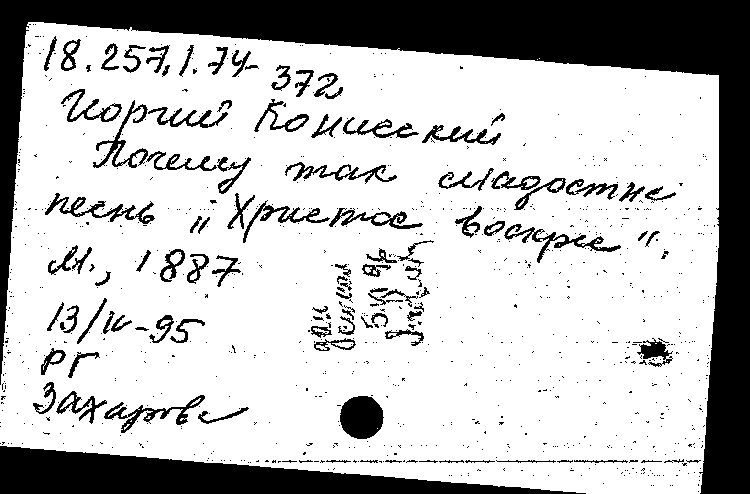 18.257.1.74-
372
Георгий Конисский
Почему так сладостна
песнь „Христос воскресе".
М., 1887
13/IV-95
РГ
Захарова
5.IV 96